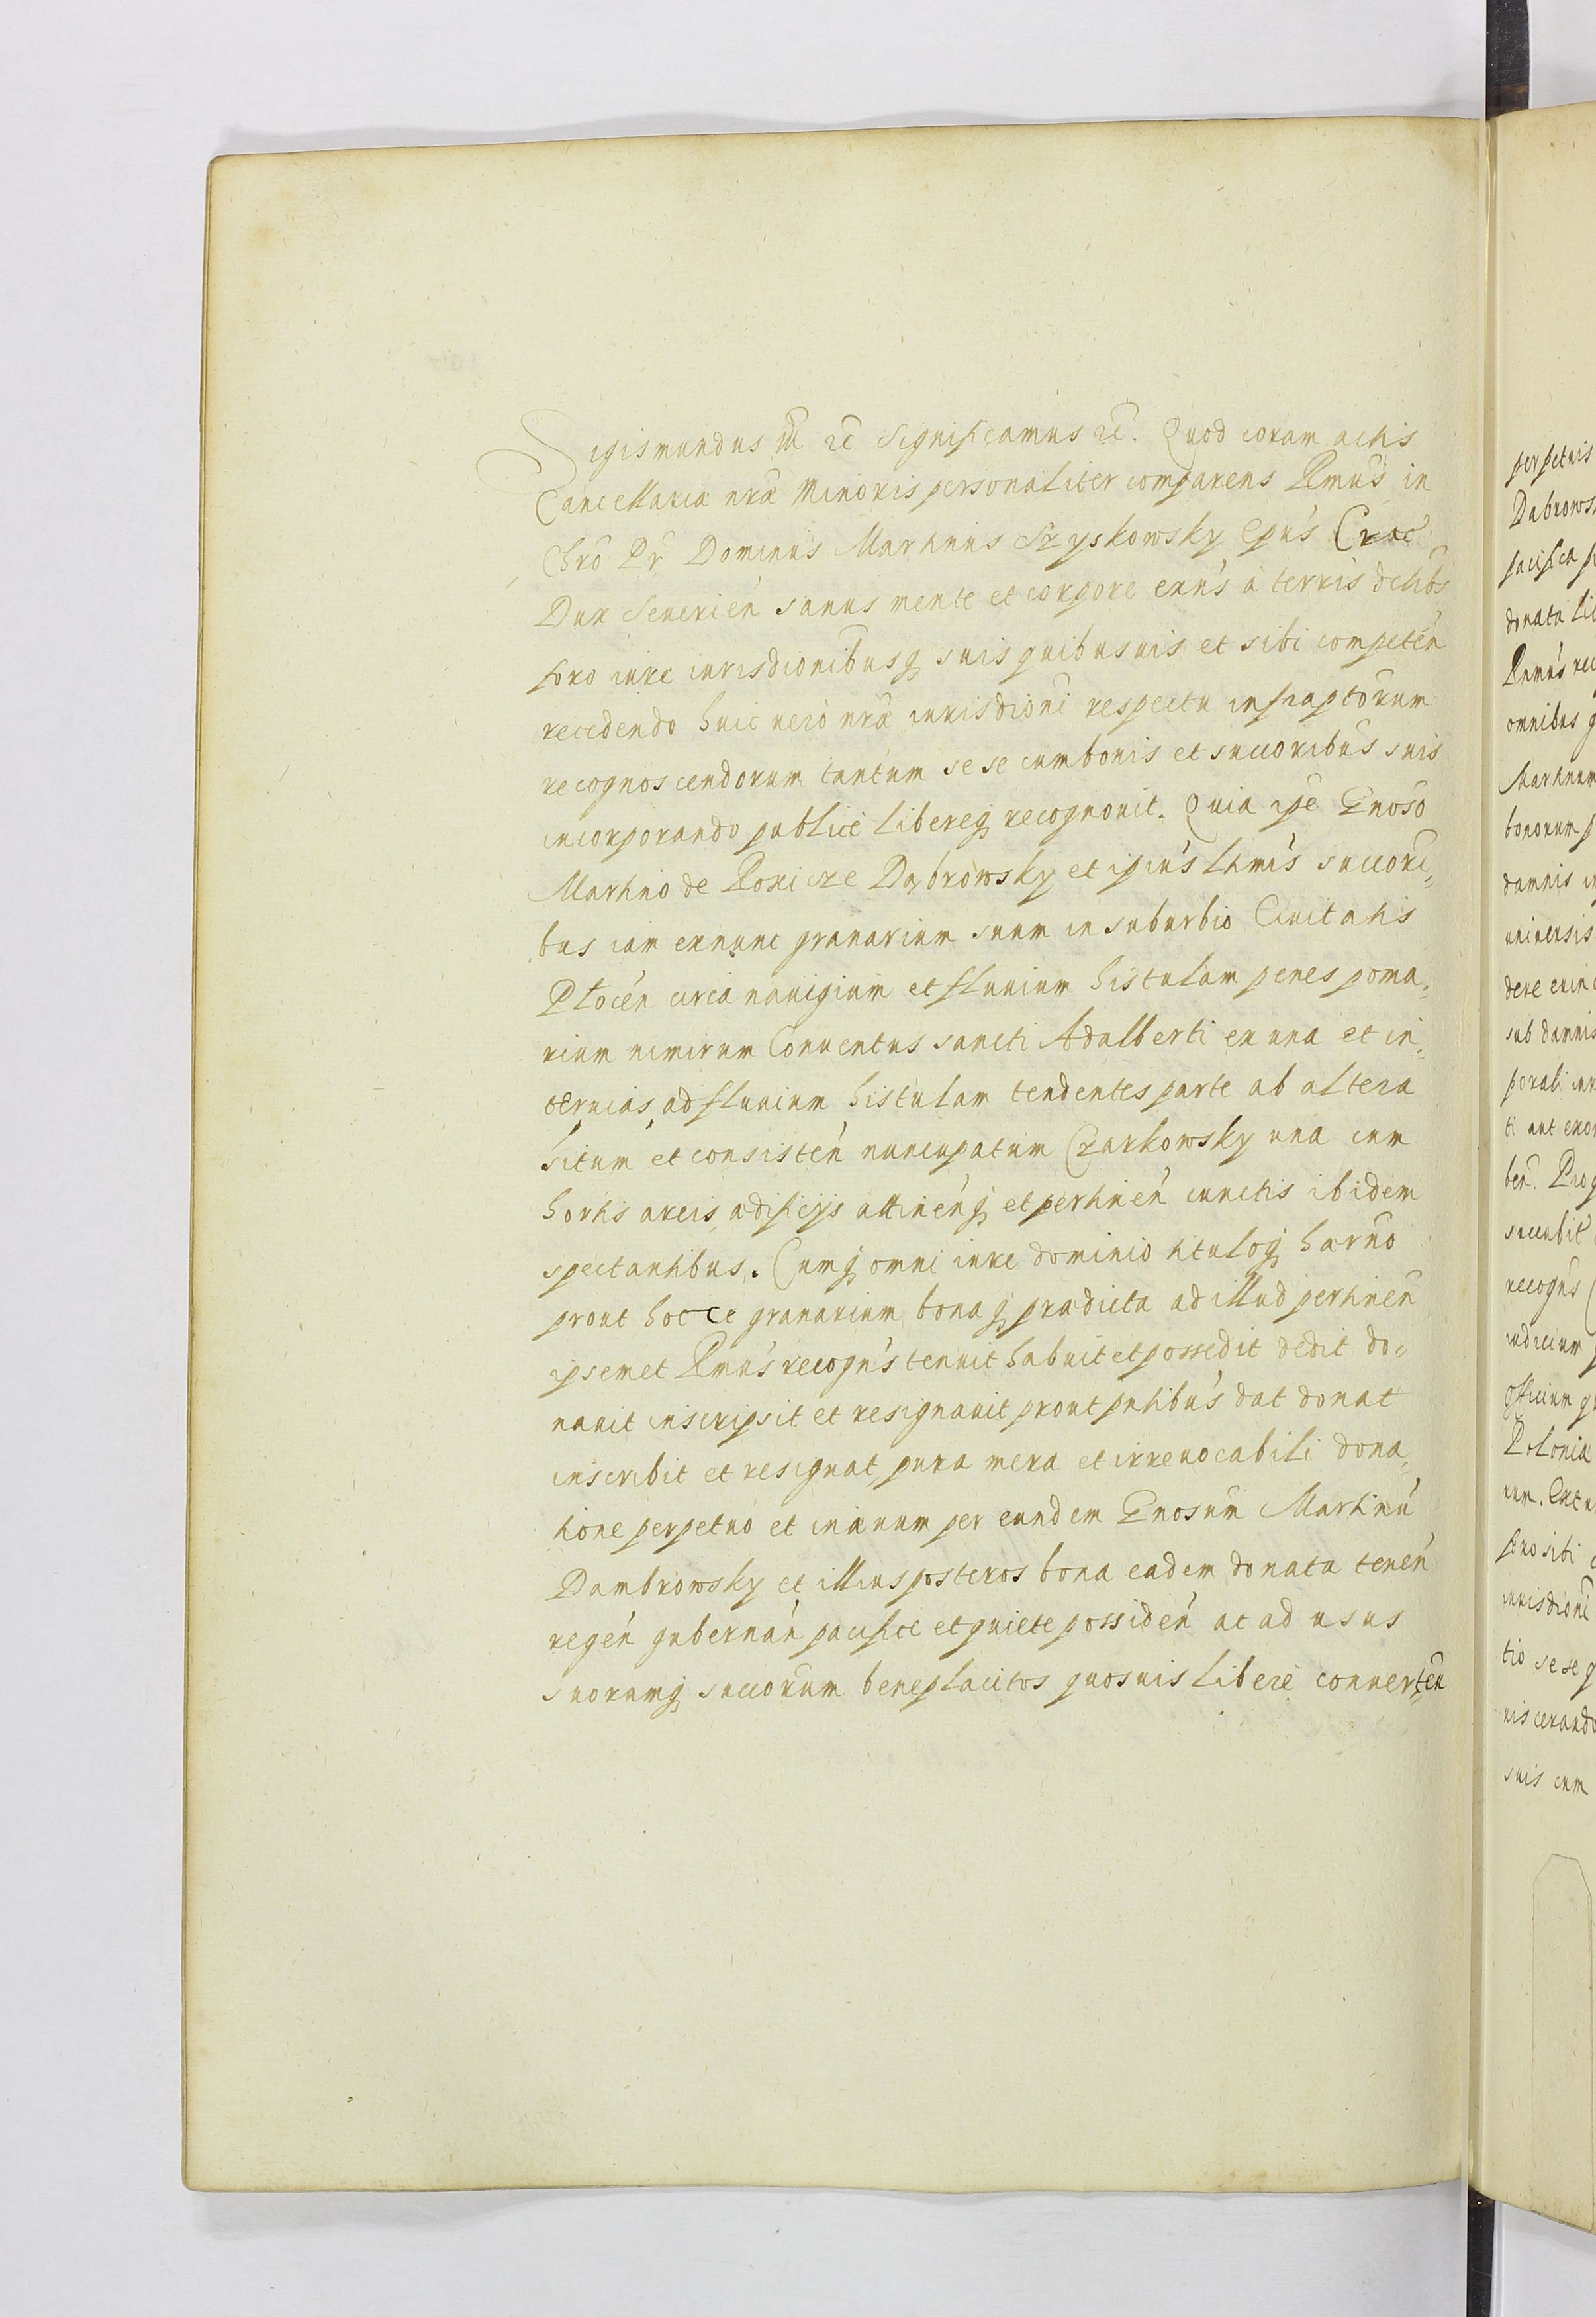 Sigismundus III etc Significamus etc. Quod coram actis
Cancellariæ nræ Minoris personaliter comparens Rmus in
Chro Pr Dominus Martinus Szyskowsky Epus Crac
Dux Severien sanus mente et corpore exns a terris
foro iure iurisdionibusq suis quibusuis et sibi competen
recedendo huic uero nræ iurisdioni respectu infraptorum
recognoscendorum tantum sese cum bonis et succoribus suis
incorporando publice libereq recognouit. Quia ipse Gnoso
Martino de Dąbrowsky et ipius ltmis succori„
bus iam exnunc granarium suum in suburbio Ciuitatis
Plocen circa nauigium et fluuium histulam penes poma„
rium nimirum Conuentus sancti Adalberti ex una et in„
teruias ad fluuium histulam tendentes parte ab altera
situm et consisten nuncupatum Czarkowsky una cum
hortis areis ædificijs attinenq et pertinen cunctis ibidem
spectantibus. Cumq omni iure dominio tituloq hærno
prout hocce granarium bonaq prædicta ad illud pertinen
ipsemet Rmus recogns tenuit habuit et possedit dedit do„
nauit inscripsit et resignauit prout pntibus dat donat
inscribit et resignat pura mera et irreuocabili dona„
tione perpetuo et in æuum per eundem Gnosum Martinu
Dambrowsky et illius posteros bona eadem donata tenen
regen gubernan pacifice et quiete possiden ac ad usus
suorumq succorum beneplacitos quosuis libere conuerten
perpetuis
Dabrows
pacifica
donata
Rmus rec
omnibus
Martinum
bonorum
damnis
uniuersis
dere
sub damnis
ti aut
succubit
recogns
iudicium
Officium
Polonia
foro sibi
iurisdioni
tio sese
suis cum